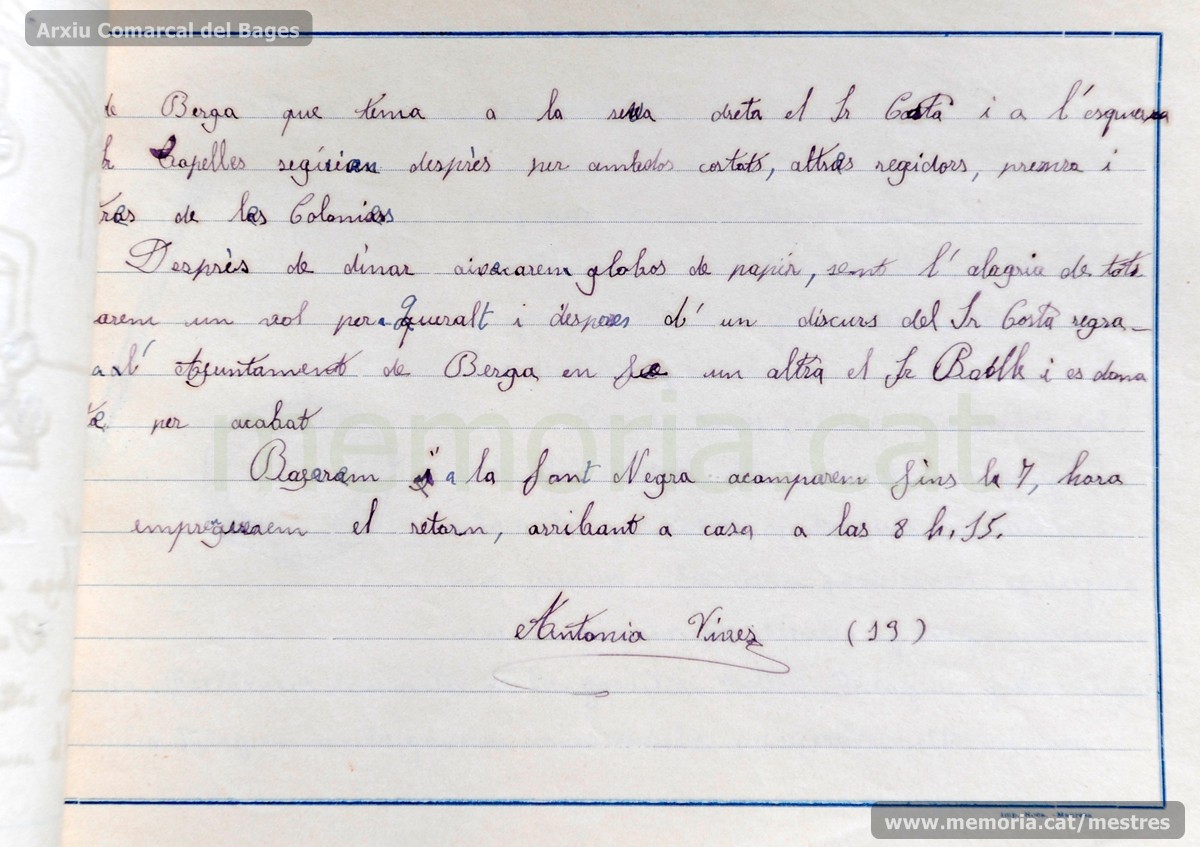 Arxiu Comarcal del Bages
de Berga que tenia a la seva dreta el Sr Costa i a l'esquerra
Sr Capelles seguien desprès per ambdos costats, altres regidors, premsa i
de les Colonies
Desprès de dinar aixecarem globos de papér, sent l'alegria de tots
arem un vol per a Queralt i despres d'un discurs del Sr Costa regra-
a l'Ajuntament de Berga en feu un altra el Sr Batlle i es dona
per acabat
Baixarem a la Font Negra acamparem fins la 7, hora
emprenguerem el retorn, arribant a casa a las 8 h. 15.
Antonia Vives (19)
memoria.cat
www.memoria.cat/mestres